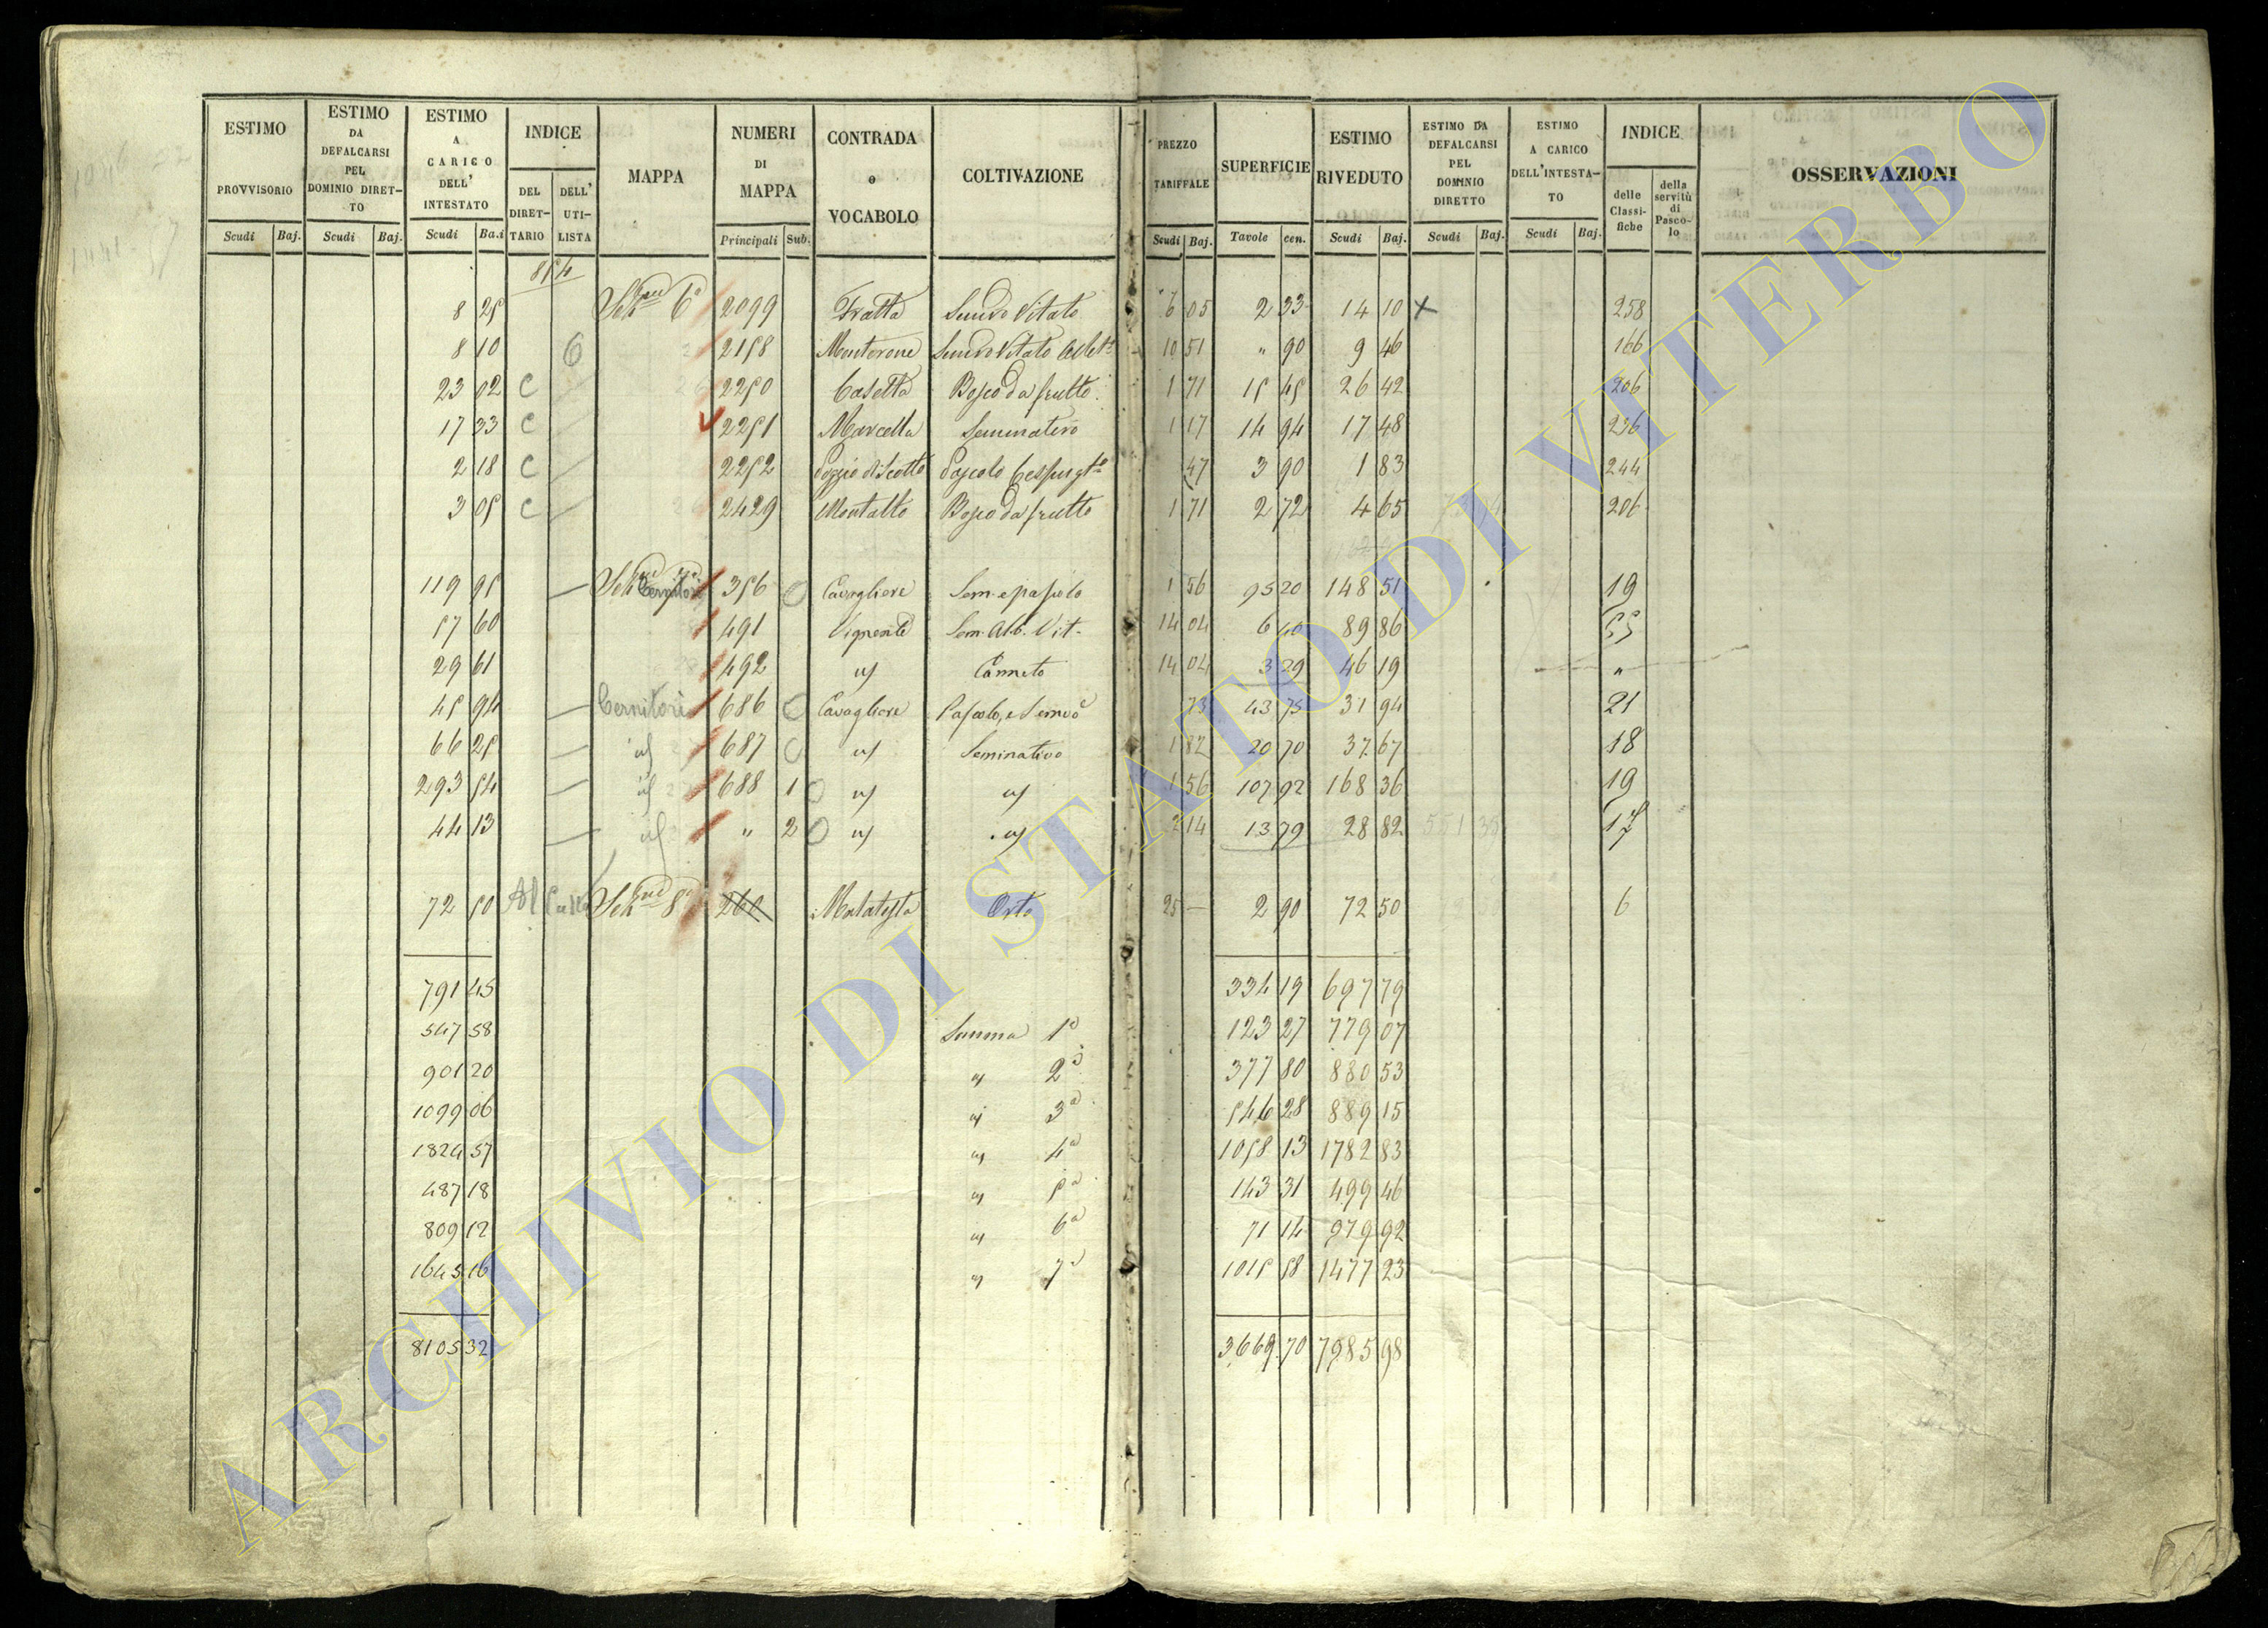 ESTIMO PROVVISORIO Scudi Baj.
ESTIMO DA DEFALCARSI PEL DOMINIO DIRETTO Scudi Baj.
ESTIMO A CARICO DELL' INTESTATO Scudi Baj.
INDICE DEL DIRETTARIO DELL' UTILISTA
MAPPA
NUMERI DI MAPPA Principali Sub.
CONTRADA o VOCABOLO
COLTIVAZIONE
PREZZO TARIFFALE Scudi Baj.
SUPERFICIE Tavole cen.
ESTIMO RIVEDUTO Scudi Baj.
ESTIMO DA DEFALCARSI PEL DOMINIO DIRETTO Scudi Baj.
ESTIMO A CARICO DELL'INTESTATO Scudi Baj.
INDICE delle Classifiche della servitù di Pascolo
OSSERVAZIONI
8 25 6ª 2099 Fratta Semvo Vitato 6 05 2 33 14 10 + 258
8 10 2158 Monterone Semvo Vitato 10 51 " 90 9 46 166
23 02 C 2250 Casetta Bosco da frutto 1 71 15 45 26 42 206
17 33 C 2251 Marcella Seminativo 1 17 14 94 17 48 236
2 18 C 2252 Pascolo 47 3 90 1 83 244
3 05 C 2429 Montalto Bosco da frutto 1 71 2 72 4 65 206
119 95 356 Cavagliere Sem. e pascolo 1 56 95 20 148 51 19
57 60 491 Sem. Alb. Vit. 14 04 6 40 89 86 55
29 61 492 Canneto 14 04 3 29 46 19 "
45 94 Cernitori 686 Cavagliere Pascolo, e Semvo 73 43 75 31 94 21
66 25 687 Seminativo 1 82 20 70 37 67 18
293 54 688 1 1 56 107 92 168 36 19
44 13 " 2 2 14 13 79 28 82 17
72 50 8ª 260 Malatesta Orto 25 — 2 90 72 50 6
791 45 334 19 697 79
547 58 Summa 1ª 123 27 779 07
901 20 2ª 377 80 880 53
1099 06 3ª 546 28 889 15
1824 57 4ª 1058 13 1782 83
487 18 5ª 143 31 499 46
809 12 6ª 71 14 979 92
1645 16 7ª 1015 58 1477 23
8105 32 3669 70 7985 98
ARCHIVIO DI STATO DI VITERBO